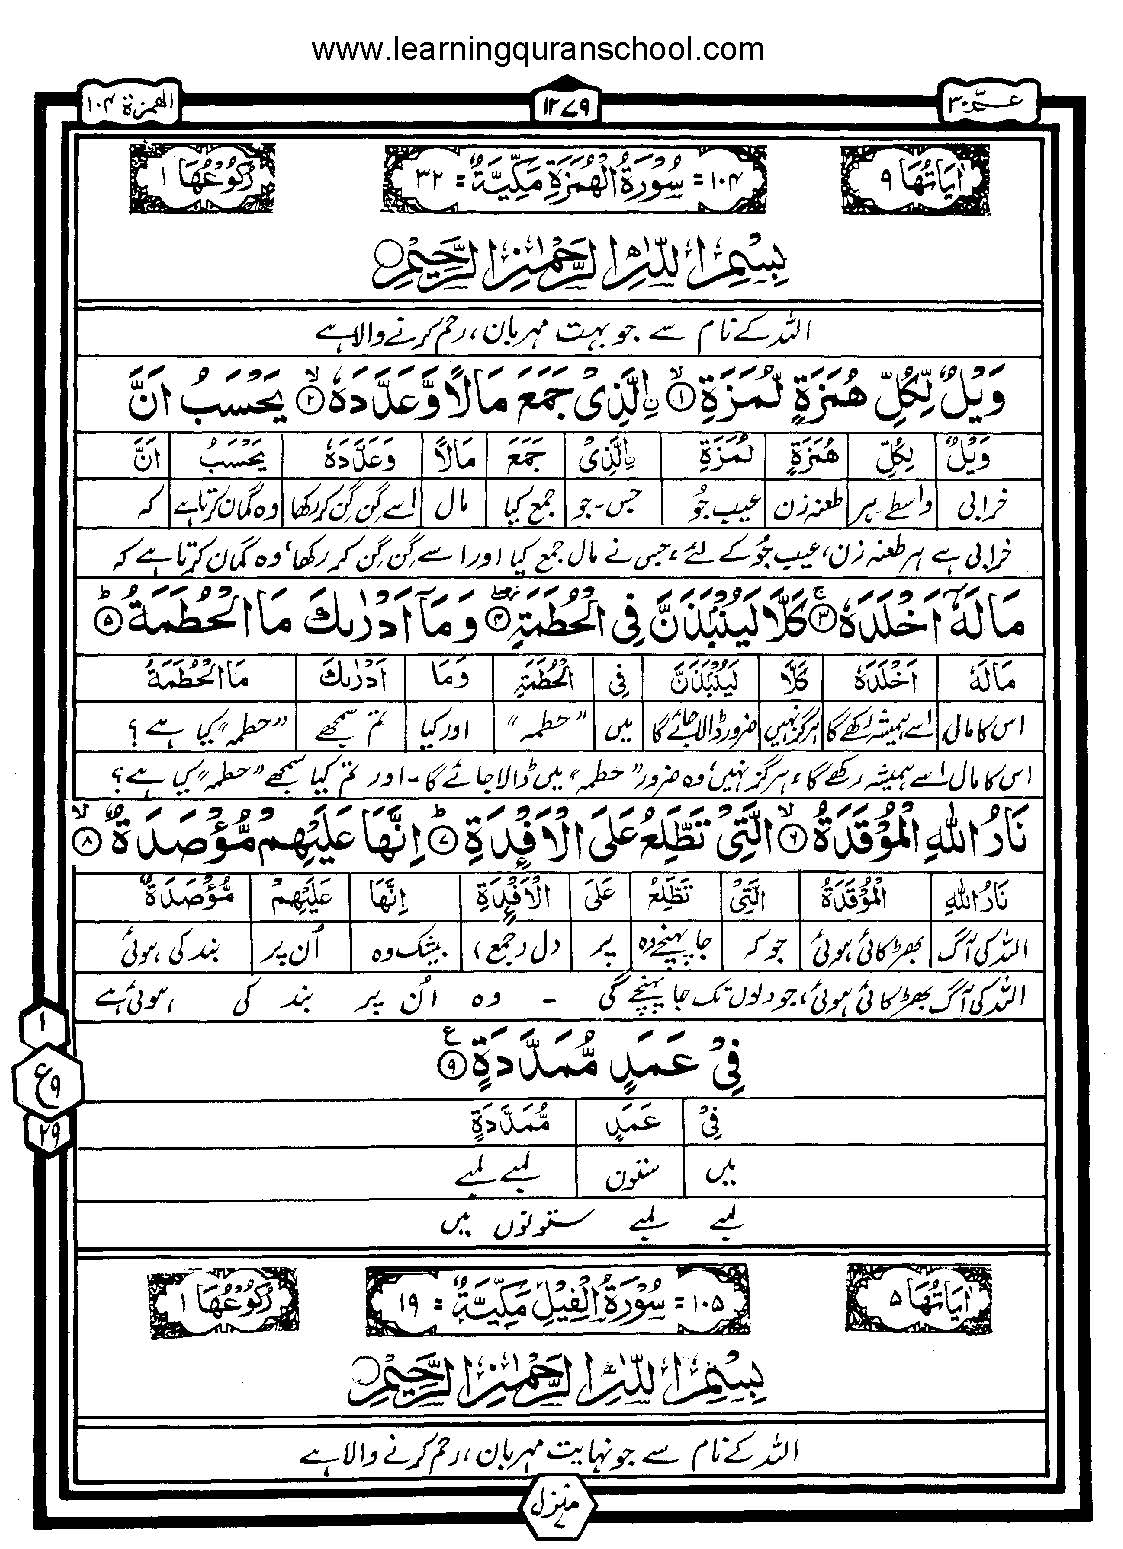 www.learningquranschool.com
عمّ ۳۰ ۱۲۷۹ الهمزة ۱۰۴
اٰيَاتُهَا ۹ ۱۰۴ = سُوْرَةُ الْهُمَزَةِ مَكِّيَّةٌ = ۳۲ رُكُوْعُهَا ۱
بِسْمِ اللّٰهِ الرَّحْمٰنِ الرَّحِيْمِ
اللہ کے نام سے جو بہت مہربان، رحم کرنے والا ہے
وَيْلٌ لِّكُلِّ هُمَزَةٍ لُّمَزَةِ ۙ۱ اِۨلَّذِيْ جَمَعَ مَالًا وَّعَدَّدَهٗ ۙ۲ يَحْسَبُ اَنَّ
وَيْلٌ لِكُلِّ هُمَزَةٍ لُمَزَةِ اِۨلَّذِيْ جَمَعَ مَالًا وَعَدَّدَهٗ يَحْسَبُ اَنَّ
خرابی واسطے ہر طعنہ زن عیب جُو جس-جو جمع کیا مال اسے گن گن کر رکھا وہ گمان کرتا ہے کہ
خرابی ہے ہر طعنہ زن، عیب جُو کے لئے، جس نے مال جمع کیا اور اسے گِن گِن کر رکھا، وہ گمان کرتا ہے کہ
مَالَهٗٓ اَخْلَدَهٗ ۚ۳ كَلَّا لَيُنْۢبَذَنَّ فِي الْحُطَمَةِ ۖ۴ وَمَآ اَدْرٰىكَ مَا الْحُطَمَةُ ؕ۵
مَالَهٗ اَخْلَدَهٗ كَلَّا لَيُنْۢبَذَنَّ فِي الْحُطَمَةِ وَمَا اَدْرٰىكَ مَا الْحُطَمَةُ
اس کا مال اسے ہمیشہ رکھے گا ہرگز نہیں ضرور ڈالا جائے گا میں "حطمہ" اور کیا تم سمجھے "حطمہ" کیا ہے؟
اس کا مال اسے ہمیشہ رکھے گا، ہرگز نہیں، وہ ضرور "حطمہ" میں ڈالا جائے گا - اور تم کیا سمجھے "حطمہ" کیا ہے؟
نَارُ اللّٰهِ الْمُوْقَدَةُ ۙ۶ الَّتِيْ تَطَّلِعُ عَلَى الْاَفْـِٕدَةِ ؕ۷ اِنَّهَا عَلَيْهِمْ مُّؤْصَدَةٌ ۙ۸
نَارُ اللّٰهِ الْمُوْقَدَةُ الَّتِيْ تَطَّلِعُ عَلَى الْاَفْـِٕدَةِ اِنَّهَا عَلَيْهِمْ مُّؤْصَدَةٌ
اللہ کی آگ بھڑکائی ہوئی جو کہ جا پہنچے وہ پر دل (جمع) بیشک وہ اُن پر بند کی ہوئی
اللہ کی آگ بھڑکائی ہوئی، جو دلوں تک جا پہنچے گی - وہ اُن پر بند کی ہوئی ہے،
فِيْ عَمَدٍ مُّمَدَّدَةٍ ۹ ع
فِيْ عَمَدٍ مُّمَدَّدَةٍ
میں ستون لمبے لمبے
لمبے لمبے ستونوں میں
۱
ع ۹
۲۹
اٰيَاتُهَا ۵ ۱۰۵ = سُوْرَةُ الْفِيْلِ مَكِّيَّةٌ = ۱۹ رُكُوْعُهَا ۱
بِسْمِ اللّٰهِ الرَّحْمٰنِ الرَّحِيْمِ
اللہ کے نام سے جو نہایت مہربان، رحم کرنے والا ہے
منزل ۷